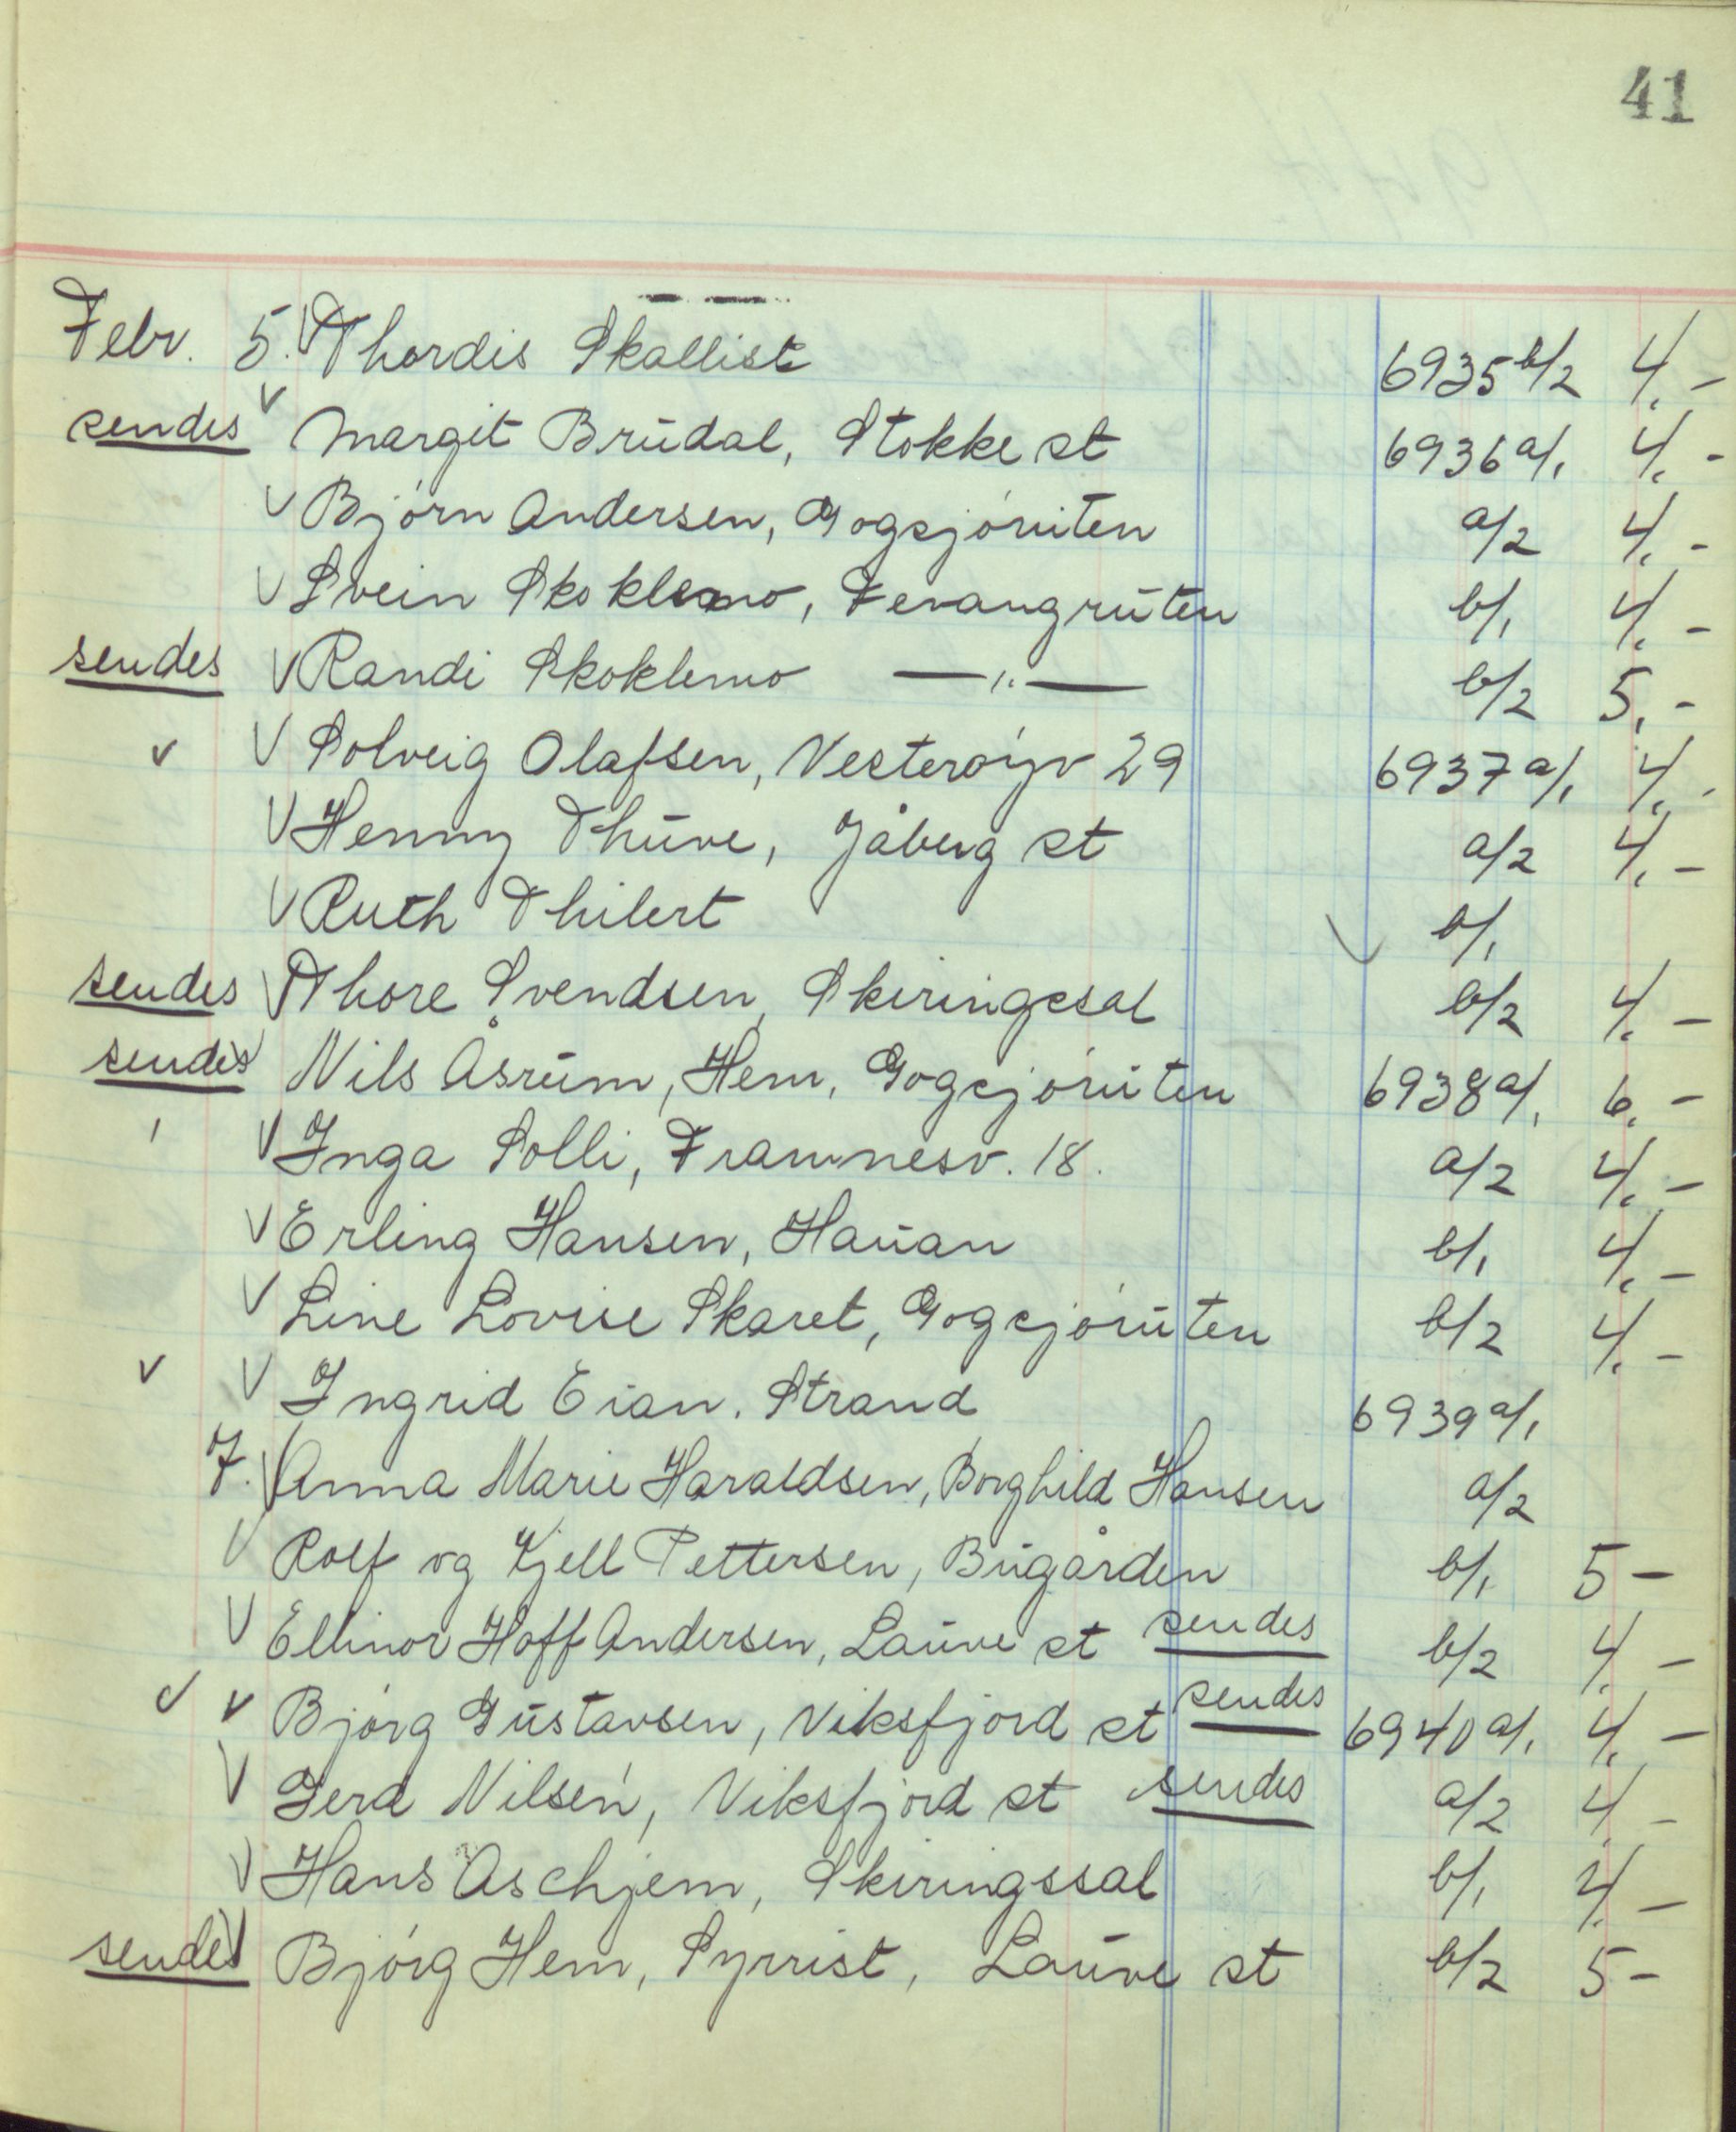 41
Febr. 5. Thordis Skallist 6935 b/2 4,-
sendes Margit Brūdal, Stokke st 6936 a/1 4,-
Bjørn Andersen, Gogsjøruten a/2 4,-
Svein Skoklemo, Fevangrūten b/1 4,-
sendes Randi Skoklemo —"— b/2 5,-
Solveig Olafsen, Vesterøyv 29 6937 a/1 4,-
Henny Thūve, Jåberg st a/2 4,-
Ruth Thilert b/1
sendes Thore Svendsen, Skiringssal b/2 4,-
sendes Nils Åsrūm, Hem, Gogsjørūten 6938 a/1 6,-
Inga Solli, Framnesv. 18. a/2 4,-
Erling Hansen, Haūan b/1 4,-
Line Lovise Skaret, Gogsjørūten b/2 4,-
Ingrid Eian, Strand 6939 a/1
7. Anna Marie Haraldsen, Borghild Hansen a/2
Rolf og Kjell Pettersen, Būgården b/1 5-
Ellinor Hoff Andersen, Laūve st sendes b/2 4,-
Bjørg Gūstavsen, Viksfjord st sendes 6940 a/1 4,-
Gerd Nilsen, Viksfjord st sendes a/2 4,-
Hans Aschjem, Skiringssal b/1 4,-
sendes Bjørg Hem, Syrrist, Laūve st b/2 5-